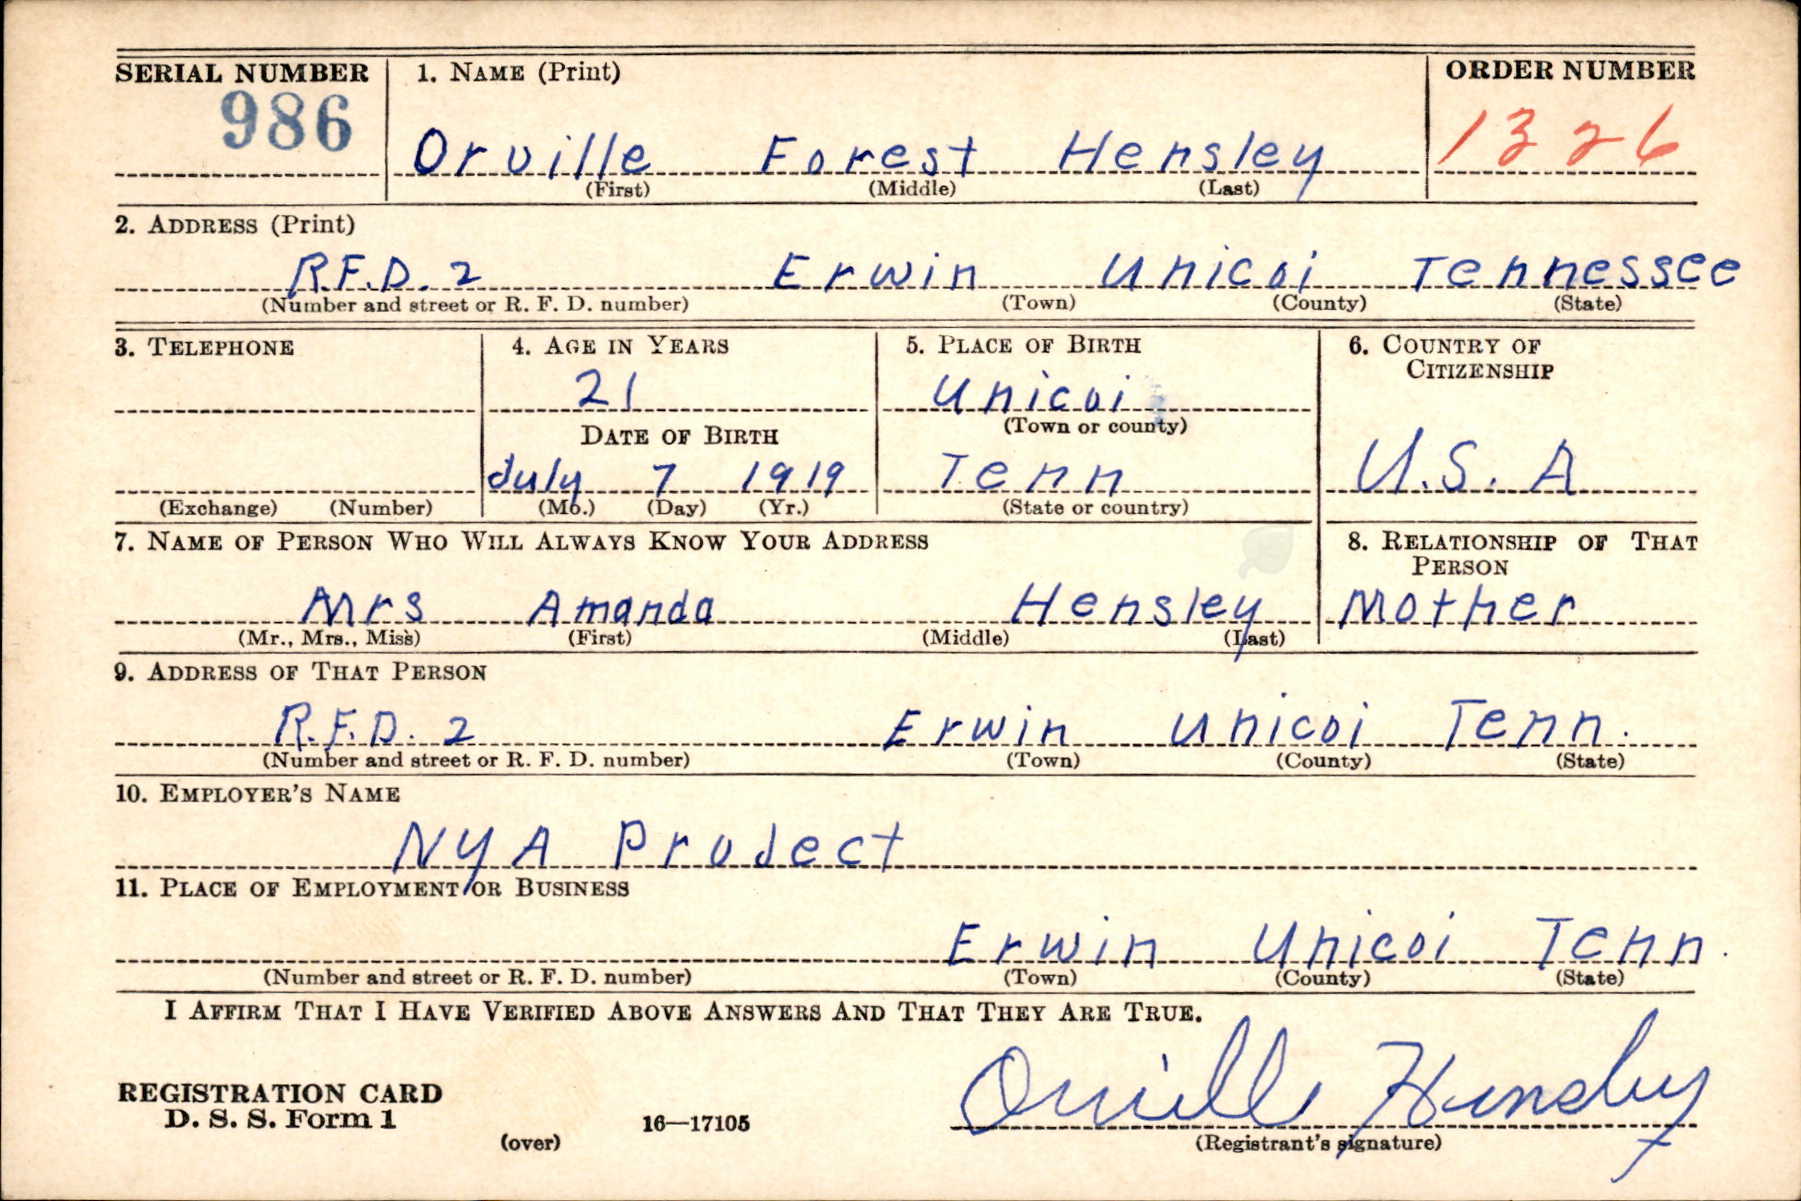 SERIAL NUMBER 1. NAME (Print) ORDER NUMBER
986 Orville Forest Hensley 1326
(First) (Middle) (Last)
2. ADDRESS (Print)
R.F.D. 2 Erwin Unicoi Tennessee
(Number and street or R. F. D. number) (Town) (County) (State)
3. TELEPHONE 4. AGE IN YEARS 5. PLACE OF BIRTH 6. COUNTRY OF
CITIZENSHIP
21 Unicoi
DATE OF BIRTH (Town or county)
July 7 1919 Tenn U.S. A
(Exchange) (Number) (Mo.) (Day) (Yr.) (State or country)
7. NAME OF PERSON WHO WILL ALWAYS KNOW YOUR ADDRESS 8. RELATIONSHIP OF THAT
PERSON
Mrs Amanda Hensley Mother
(Mr., Mrs., Miss) (First) (Middle) (Last)
9. ADDRESS OF THAT PERSON
R.F.D. 2 Erwin Unicoi Tenn.
(Number and street or R. F. D. number) (Town) (County) (State)
10. EMPLOYER'S NAME
NYA Project
11. PLACE OF EMPLOYMENT OR BUSINESS
Erwin Unicoi Tenn.
(Number and street or R. F. D. number) (Town) (County) (State)
I AFFIRM THAT I HAVE VERIFIED ABOVE ANSWERS AND THAT THEY ARE TRUE.
REGISTRATION CARD
D. S. S. Form 1 16—17105 Orville Hensley
(over) (Registrant's signature)